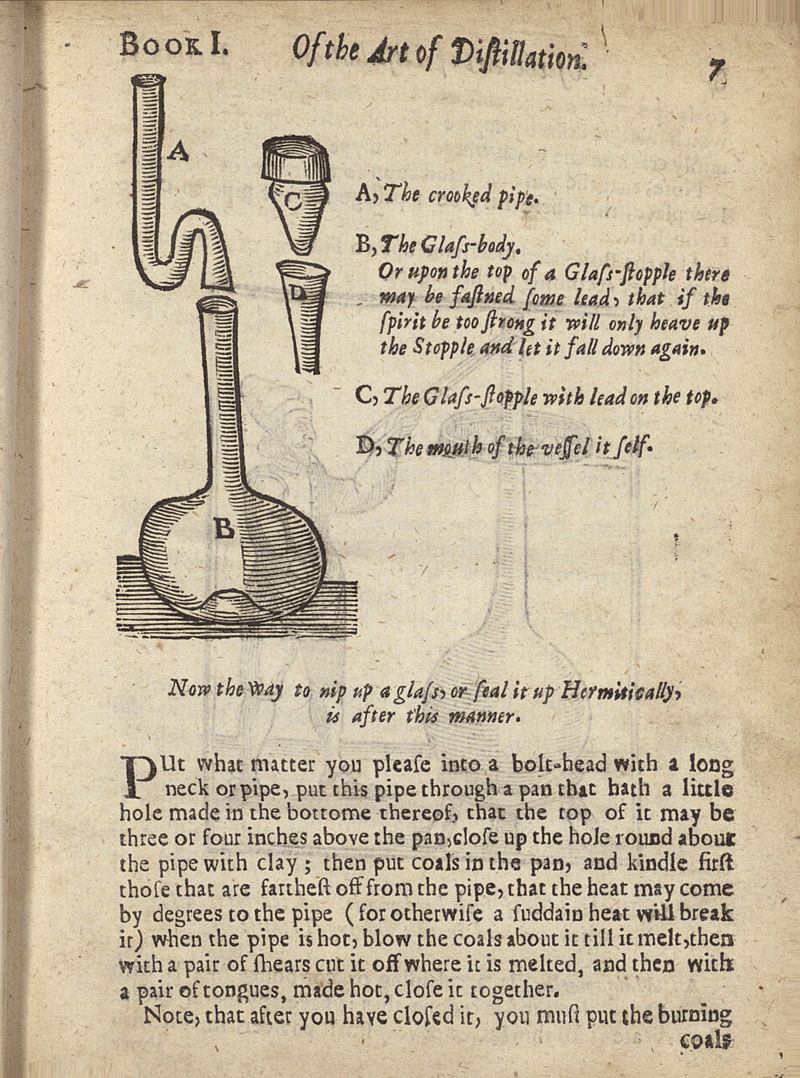 BOOK I.
Of the Art of Diſtillation.
7
A
C
D
B
A, The crooked pipe.
B, The Glaſs-body.
Or upon the top of a Glaſs-ſtopple there
may be faſtned ſome lead, that if the
ſpirit be too ſtrong it will only heave up
the Stopple and let it fall down again.
C, The Glaſs-ſtopple with lead on the top.
D, The mouth of the veſſel it ſelf.
Now the Way to nip up a glaſs, or ſeal it up Hermitically,
is after this manner.
PUt what matter you pleaſe into a bolt-head with a long
neck or pipe, put this pipe through a pan that hath a little
hole made in the bottome thereof, that the top of it may be
three or four inches above the pan, cloſe up the hole round about
the pipe with clay ; then put coals in the pan, and kindle firſt
thoſe that are fartheſt off from the pipe, that the heat may come
by degrees to the pipe ( for otherwiſe a ſuddain heat will break
it) when the pipe is hot, blow the coals about it till it melt, then
with a pair of ſhears cut it off where it is melted, and then with
a pair of tongues, made hot, cloſe it together.
Note, that after you have cloſed it, you muſt put the burning
coals